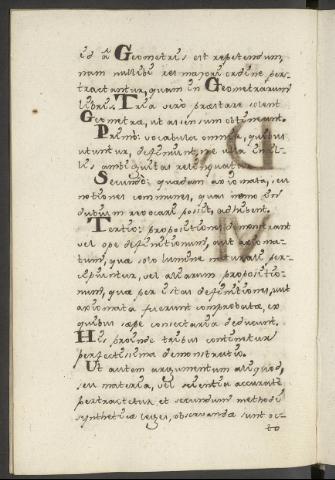 id â Geometris est repetendum,
nam nullibi res majori ordine per-
tractantur, quam in Geometrarum
libris. Tria vero præstare solent
Geometræ, ut assensum obtineant.
Primò: vocabula omnia, quibus
utuntur, definiunt, ne ulla
ambiguitas relinquatur.
Secundò: quædam axiomata, seu
notiones communes, quas nemo in
dubium revocare possit, adhibent.
Tertiò: propositiones demonstrant
vel ope definitionum, aut axioma-
tum, quæ solo lumine naturali per-
cipiuntur, vel aliarum propositio-
num, quæ per istas definitiones, aut
axiomata fuerunt comprobatæ, ex
quibus sæpe consectaria deducunt.
His proinde tribus continetur
perfectissima demonstratio.
Ut autem argumentum aliquod,
seu materia, vel scientia accuratè
pertractetur, et secundum methodi
syntheticæ leges, observanda sunt oc-
to